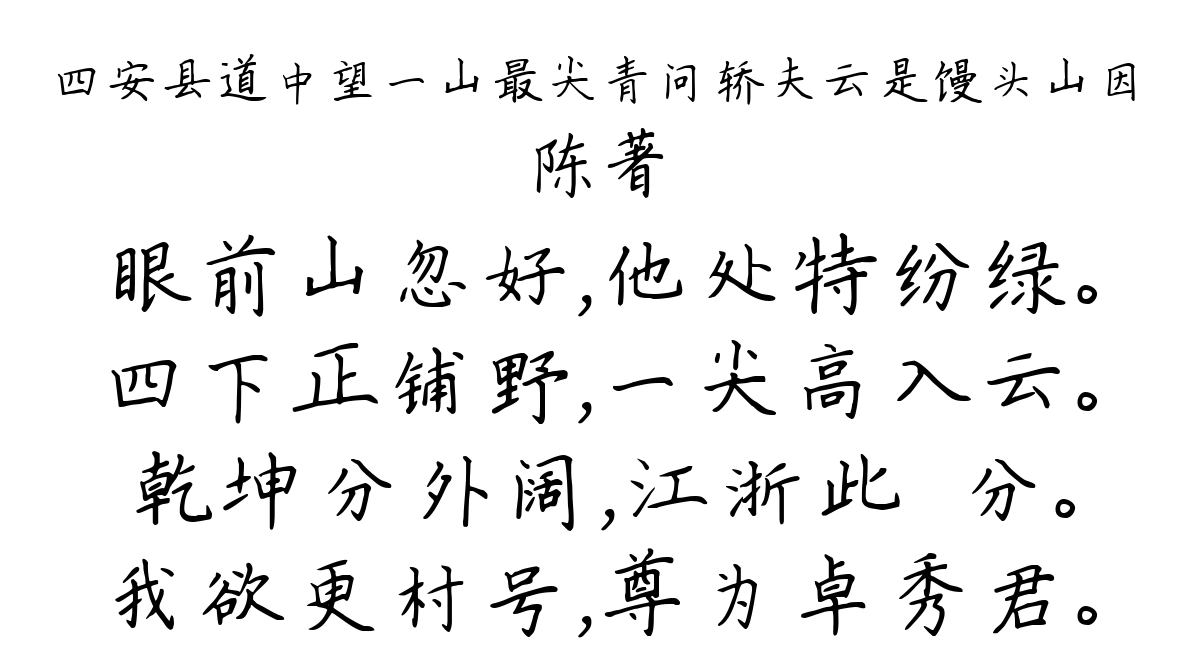 四安县道中望一山最尖青问轿夫云是馒头山因
陈著
眼前山忽好,他处特纷绿。
四下正铺野,一尖高入云。
乾坤分外阔,江浙此 分。
我欲更村号,尊为卓秀君。